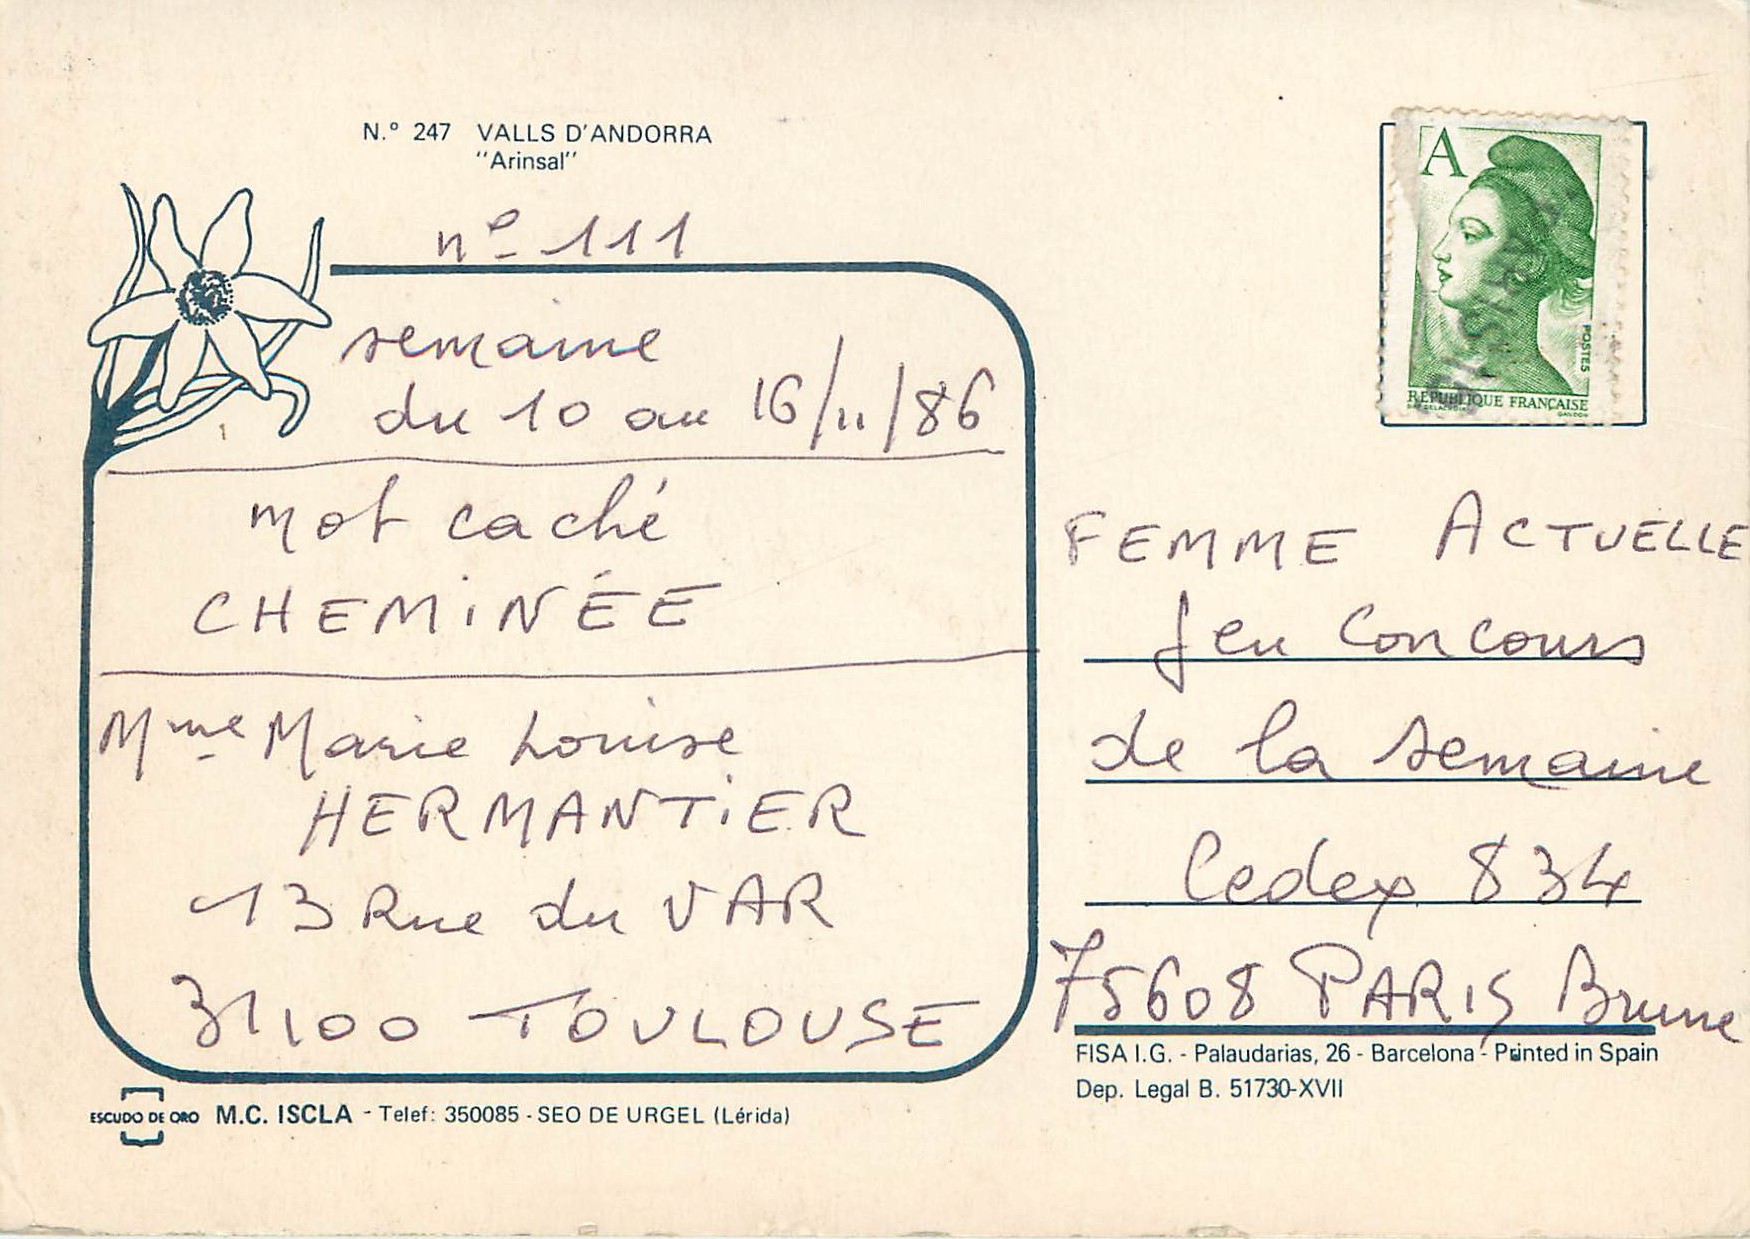 N.º 247 VALLS D'ANDORRA
"Arinsal"
nº 111
semaine
du 10 au 16/11/86
mot caché
CHEMINÉE
Mme Marie Louise
HERMANTIER
13 Rue du VAR
31100 TOULOUSE
ESCUDO DE ORO M.C. ISCLA - Telef: 350085 - SEO DE URGEL (Lérida)
A
POSTES
REPUBLIQUE FRANÇAISE
GANDON
FEMME ACTUELLE
Jeu Concours
de la semaine
Cedex 834
75608 PARIS Brune
FISA I.G. - Palaudarias, 26 - Barcelona - Printed in Spain
Dep. Legal B. 51730-XVII